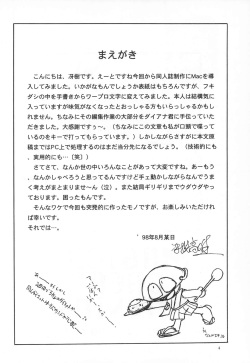 まえがき
こんにちは、冴樹です。えーとですね今回から同人誌制作にMacを導
入してみました。いかがなもんでしょうか表紙はもちろんですが、フキ
ダシの中を手書きからワープロ文字に変えてみました。本人は結構気に
入っていますが味気がなくなったとおっしゃる方もいらっしゃるかもし
れません。ちなみにその編集作業の大部分をダイアナ君に手伝っていた
だきました。大感謝ですっ〜。（ちなみにこの文章も私が口頭で喋って
いるのをキーで打ってもらっています。）しかしながらさすがに本文原
稿まではPC上で処理するのはまだ当分先になるでしょう。（技術的にも
、実用的にも…（笑））
さてさて、なんか世の中いろんなことがあって大変ですね。あーもう
、なんかしゃべろうと思ってるんですけど手ぇ動かしながらなんでうま
く考えがまとまりませ〜ん（泣）。また結局ギリギリまでウダウダやっ
ております。困ったもんです。
そんなワケで今回も突発的に作ったモノですが、お楽しみいただけれ
ば幸いです。
それでは…。
'98年8月某日
4